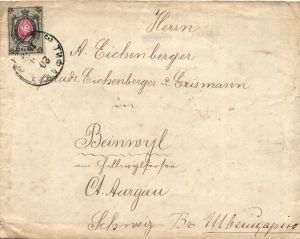 Herrn
A. Eichenberger
Eichenberger & Erismann
in
Beinwyl
am Hallwylersee
Ct. Aargau
Schweiz Въ Швейцарію